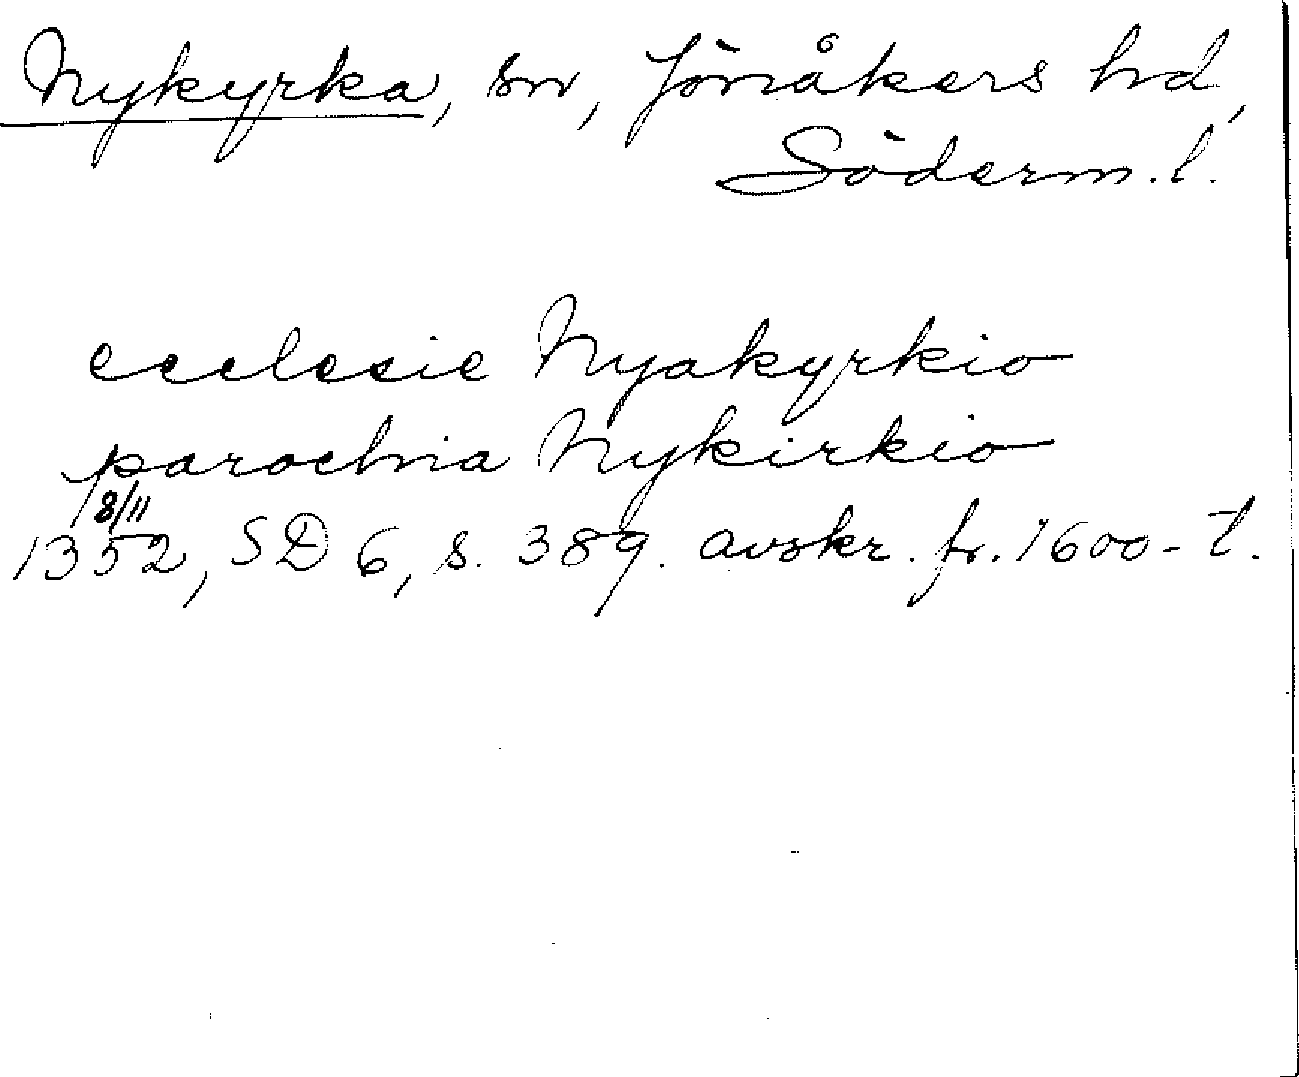 Nykyrka, sn, Jönåkers hd,
Söderm. l.
ecclesie Nyakyrkio
parochia Nykirkio
8/11
1352, SD 6, s. 389. avskr. fr. 1600-t.